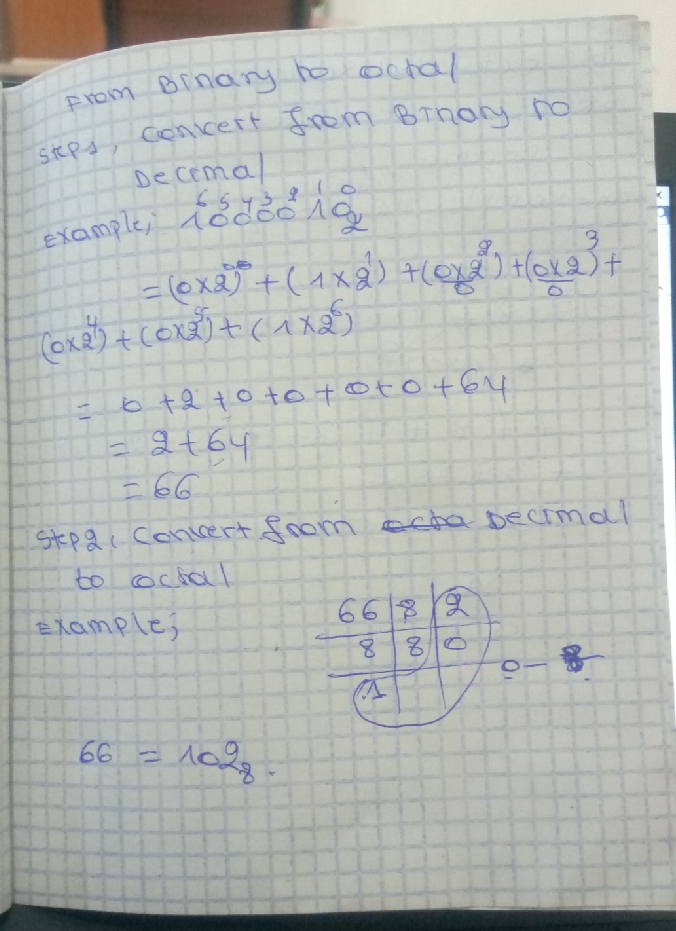 From Binary to octal
Step1, Convert from Binary to
Decimal
6 5 4 3 2 1 0
Example; 1000010₂
= (0×2⁰) + (1×2¹) + (0×2²) + (0×2)³ +
0 0
(0×2⁴) + (0×2⁵) + (1×2⁶)
= 0 + 2 + 0 + 0 + 0 + 0 + 64
= 2 + 64
= 66
Step2, Convert from octa Decimal
to octal
Example;
66 8 2
8 8 0
1
0 -
66 = 102₈.